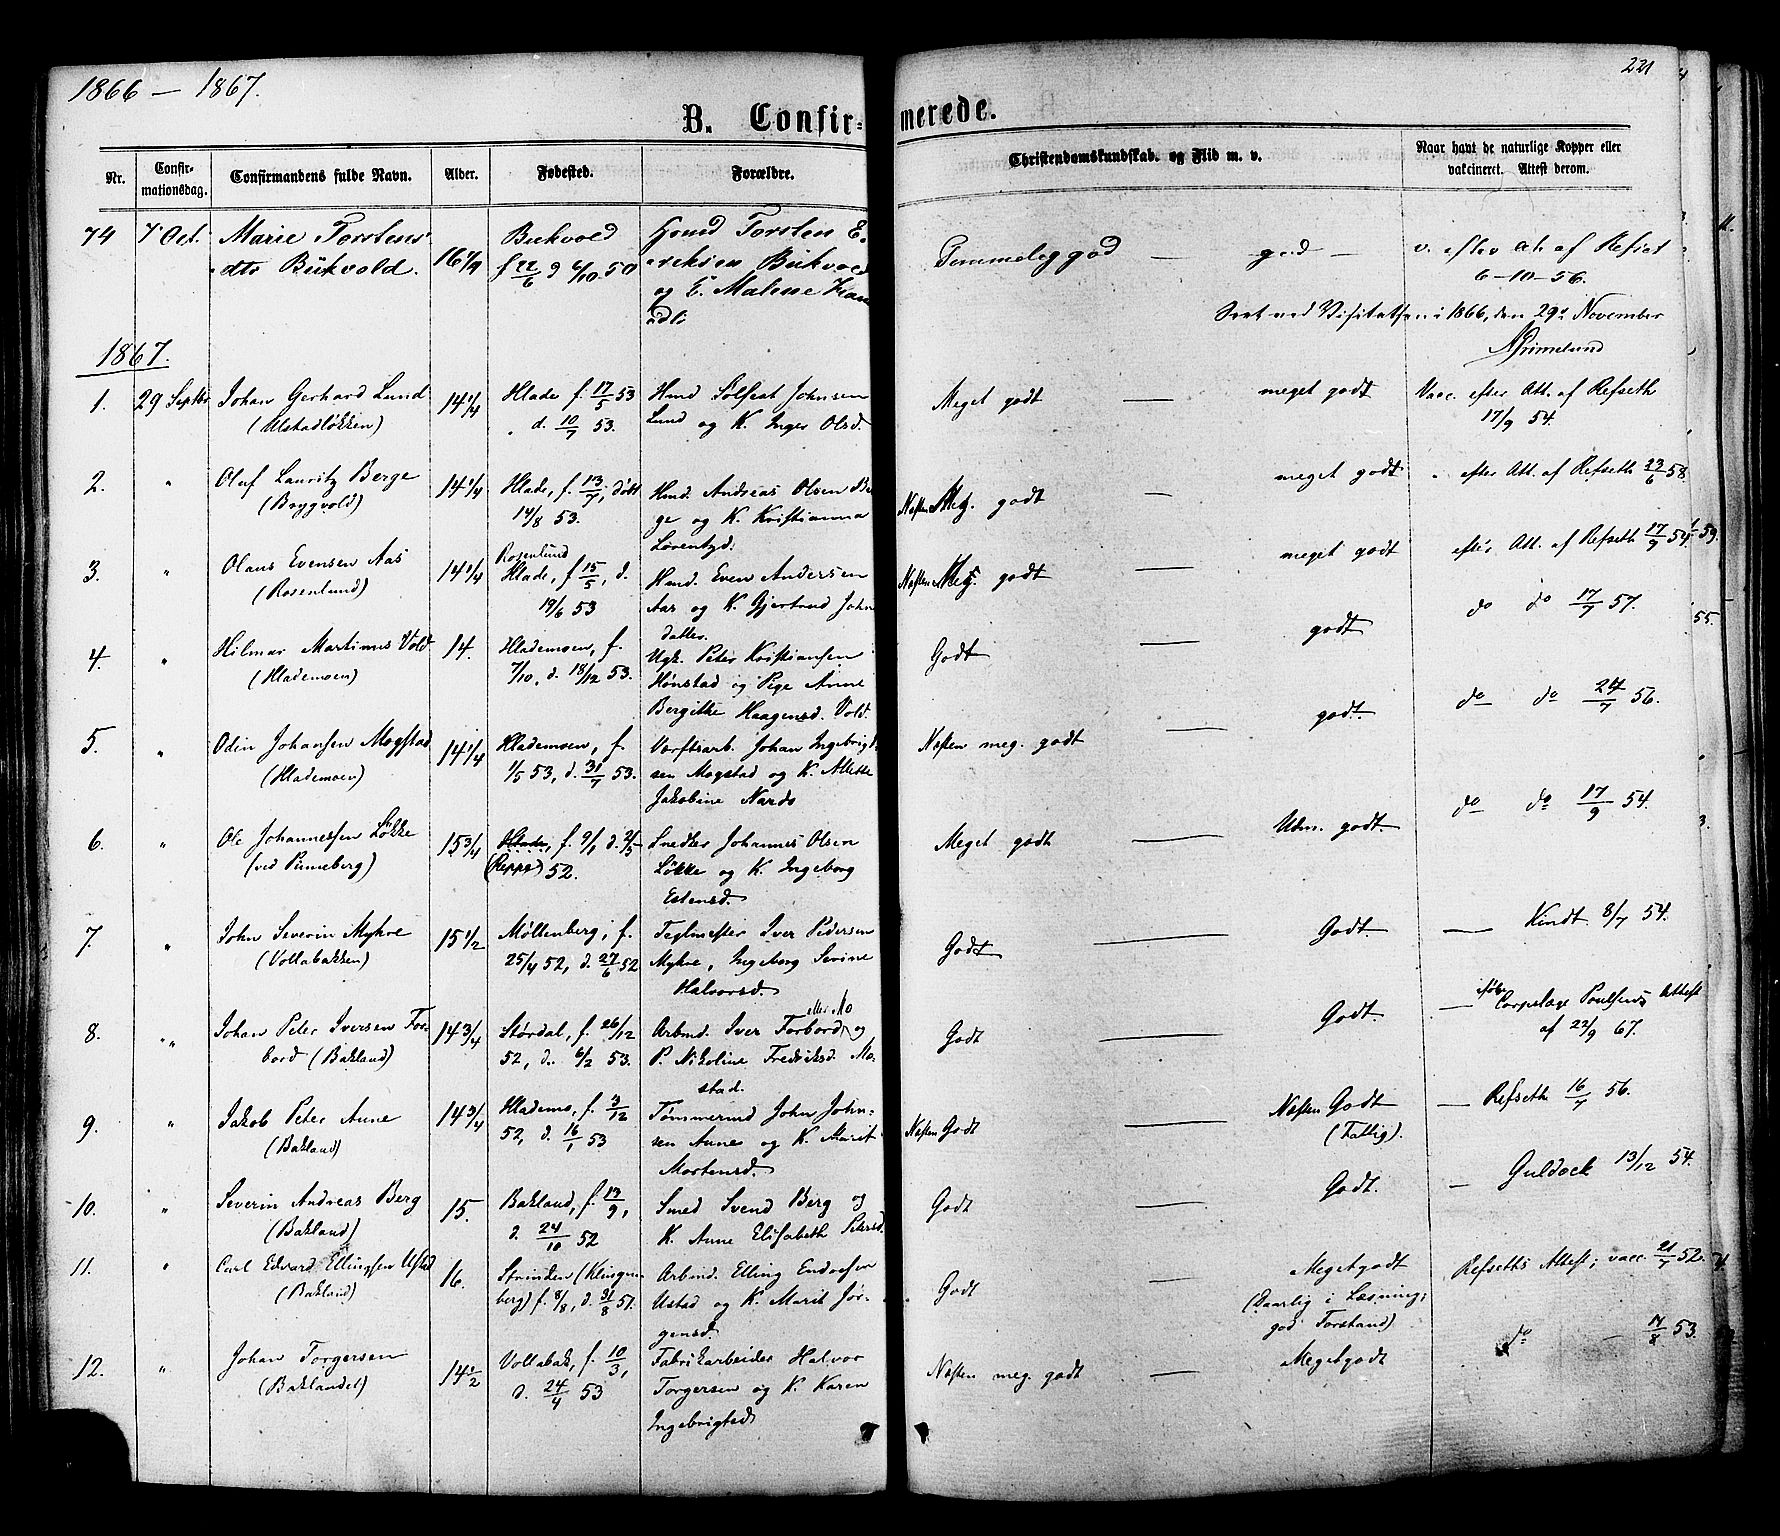 1866 – 1867.
221
B. Confirmerede.
Nr. Confirmationsdag. Confirmandens fulde Navn. Alder. Fødested. Forældre. Christendomskundskab. og Flid m. v. Naar havt de naturlige Kopper eller vakcineret. Attest derom.
74 7 Oct. Marie Torstens
dtr Bükvold.
Bukvold
f 22/6 9 6/10 50
Torsten E.
og E. Malene
god
v. efter at. af Refset
6–10–56.
i 1866, den 29de November
1867.
1. 29 Septbr Johan Gerhard Lund
(Ulstadløkken)
14 1/4
Hlade f. 17/5 53
d. 10/7 53.
Hmd Sølfest Johnsen
Lund og K. Inger Olsd.
Meget godt — meget godt
Vacc. efter Att. af Refseth
17/9 54.
2. " Oluf Lauritz Berge
(Brygvold)
14 1/4
Hlade, f. 13/7, døbt
14/8 53.
Hmd. Andreas Olsen Ber
ge og K. Kristianna
Lorentzd.
Næsten Meg. godt — meget godt
" efter Att. af Refseth 22/6 58
3. " Olaus Evensen Aas
(Rosenlund)
14 1/4
Rosenlund
Hlade, f 15/5, d.
19/6 53
Hmd. Even Andersen
Aas og K. Gjertrud John
datter.
Næsten Meg. godt — meget godt
efter Att. af Refseth 17/9 54.
4. " Hilmar Martinus Vold
(Hlademoen)
14.
Hlademoen, f.
7/10, d. 18/12 53.
Ugk. Peter Kristiansen
Hønstad og Pige Anne
Bergitte Haagensd. Vold.
Godt — godt
do do 17/7 57.
5. " Odin Johansen Mogstad
(Hlademoen)
14 1/4
Hlademoen, f.
1/5 53, d. 31/7 53.
Værftsarb. Johan Ingebrigt
sen Mogstad og K. Alette
Jakobine Nards
Næsten meg. godt — godt.
do do 24/7 56.
6. " Ole Johannessen Løkke
(ved Pinneberg)
15 3/4
Hlade, f. 9/1 d. 2/5
(Reppe) 52.
Snedker Johannes Olsen
Løkke og K. Ingeborg
Estensd.
Meget godt — Udm. godt.
do do 17/9 54.
7. " John Severin Myhre
(Vollabakken)
15 1/2
Møllenberg, f.
25/4 52, d. 27/6 52
Teglmester Iver Pedersen
Myhre, Ingeborg Serine
Halvorsd.
Godt — Godt.
— Kindt 8/7 54.
8. " Johan Peter Iversen For-
bord (Bakland)
14 3/4
Størdal, f. 26/12
52, d. 6/2 53.
Arbmd. Iver Forbord eller Mo og
P. Nikoline Fredriksd. Mo-
stad.
Godt — Godt.
— Corpslæge Poulsens Attest
af 22/9 67.
9. " Jakob Peter Aune
(Bakland)
14 3/4
Hlademo, f. 3/12
52, d. 16/1 53
Tømmermd John John-
sen Aune og K. Marit
Mortensd.
Næsten Godt — Næsten Godt
(Fattig).
— Refseth 16/7 56.
10. " Severin Andreas Berg
(Bakland)
15.
Bakland, f. 13/9,
d. 24/10 52
Smed Svend Berg og
K. Anne Elisabeth Petersd.
Godt — Godt.
— Guldack 13/12 54.
11. " Carl Edvard Ellingsen Ustad
(Bakland)
16.
Strinden (Klingen
berg) f. 8/8, d. 31/8 51.
Arbmd. Elling Endresen
Ustad og K. Marit Jør-
gensd.
Godt — Megetgodt
(Daarlig i Læsning;
god Forstand)
Refseths Attest; vacc 21/7 52.
12. " Johan Torgersen
(Baklandet)
14 1/2
Vollabak, f. 10/3,
d. 24/4 53
Fabrikarbeider Halvor
Torgersen og K. Karen
Ingebrigtsd.
Næsten meg. godt — Megetgodt
do — 17/8 53.